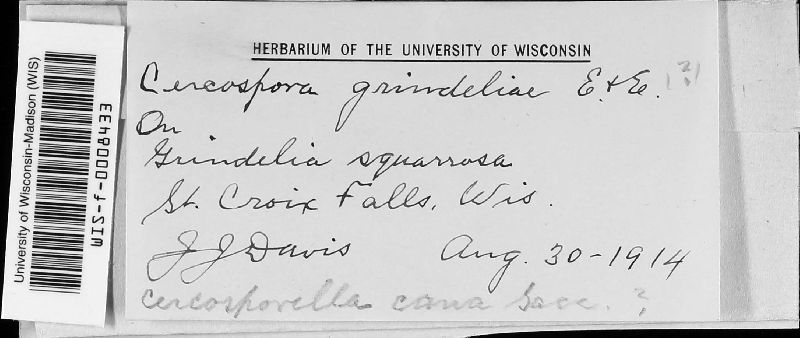 University of Wisconsin-Madison (WIS)
WIS-f-0008433
HERBARIUM OF THE UNIVERSITY OF WISCONSIN
Cercospora grindeliae E. & E. (?)
On
Grindelia squarrosa
St. Croix Falls, Wis.
J J Davis Aug. 30-1914
Cercosporella cana Sacc. ?